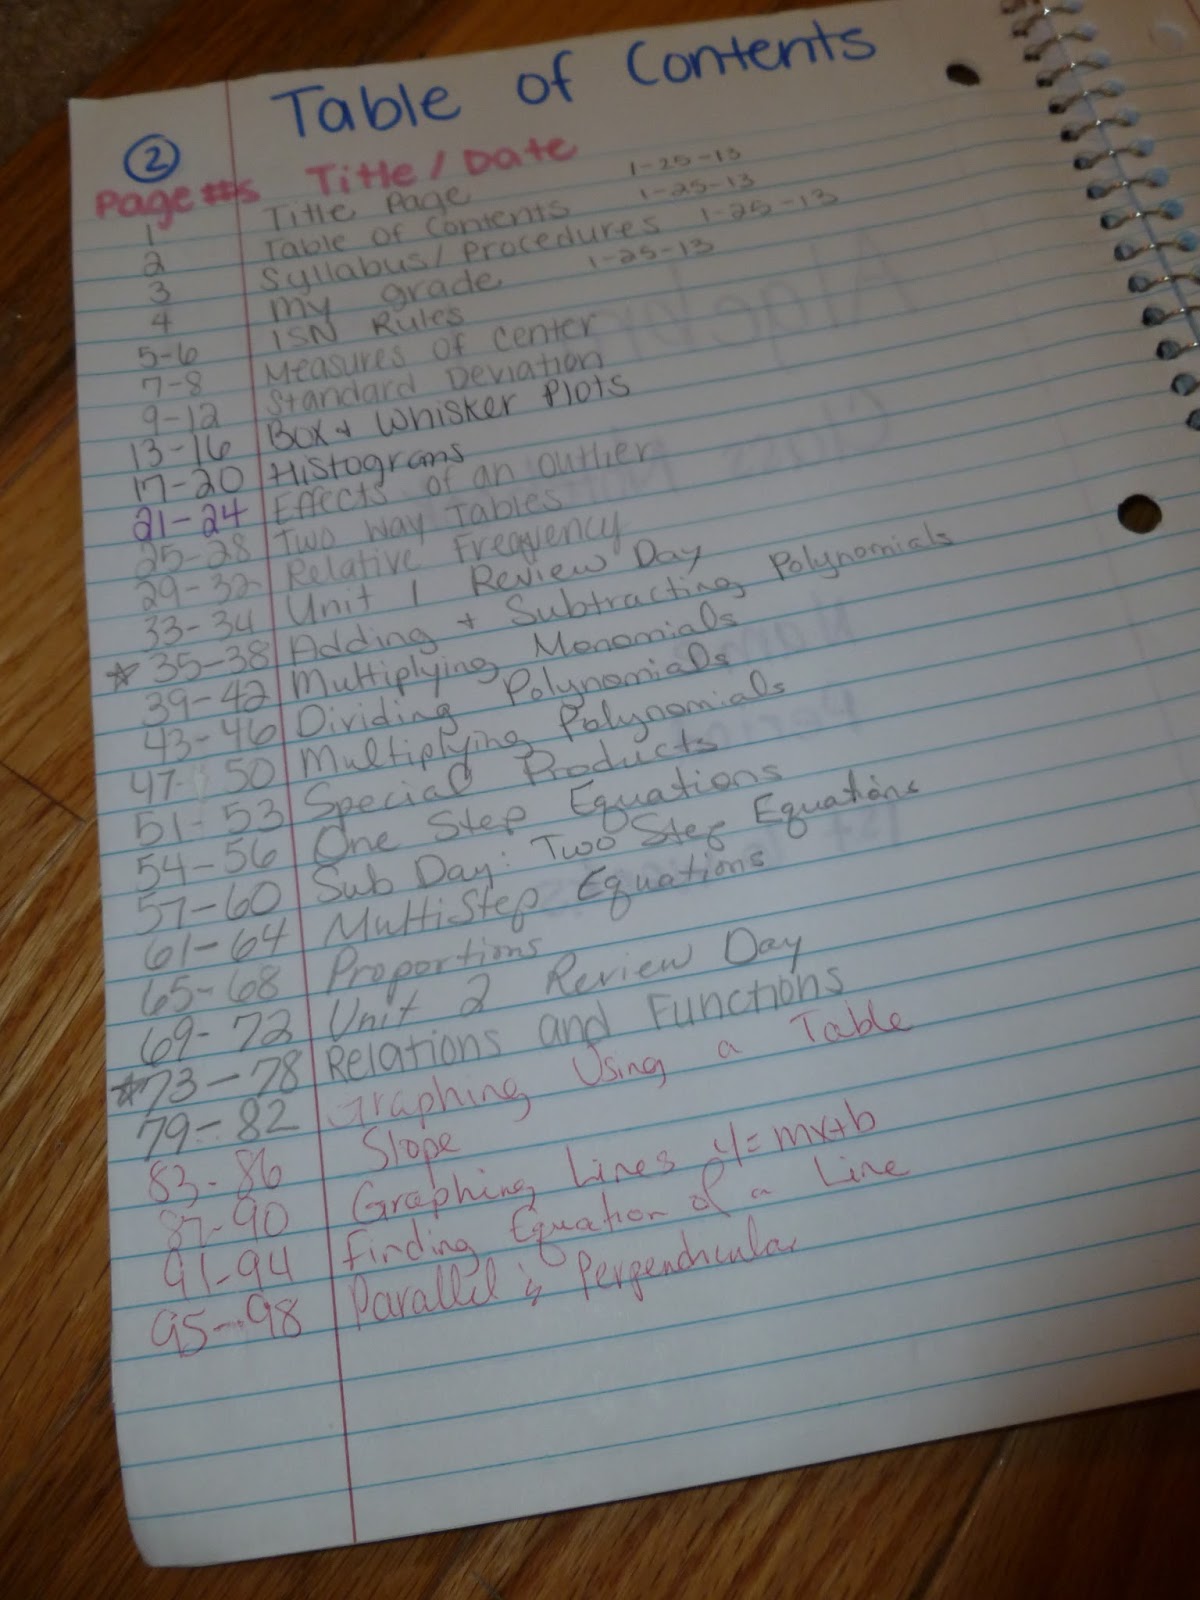 Table of Contents
2
Page #s Title / Date
1 Title Page 1-25-13
2 Table of Contents 1-25-13
3 Syllabus / Procedures 1-25-13
4 My grade 1-25-13
5-6 ISN Rules
7-8 Measures of Center
9-12 Standard Deviation
13-16 Box + Whisker Plots
17-20 Histograms
21-24 Effects of an outlier
25-28 Two Way Tables
29-32 Relative Frequency
33-34 Unit 1 Review Day
☆ 35-38 Adding + Subtracting Polynomials
39-42 Multiplying Monomials
43-46 Dividing Polynomials
47- 50 Multiplying Polynomials
51-53 Special Products
54-56 One Step Equations
57-60 Sub Day: Two Step Equations
61-64 MultiStep Equations
65-68 Proportions
69-72 Unit 2 Review Day
☆ 73-78 Relations and Functions
79-82 Graphing Using a Table
83-86 Slope
87-90 Graphing Lines y=mx+b
91-94 Finding Equation of a Line
95-98 Parallel & Perpendicular